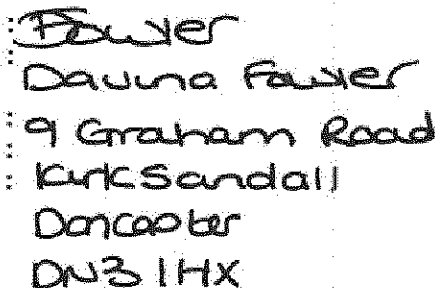 Fowler
Davina Fowler
9 Graham Road
Kirk Sandall
Doncaster
DN3 1HX